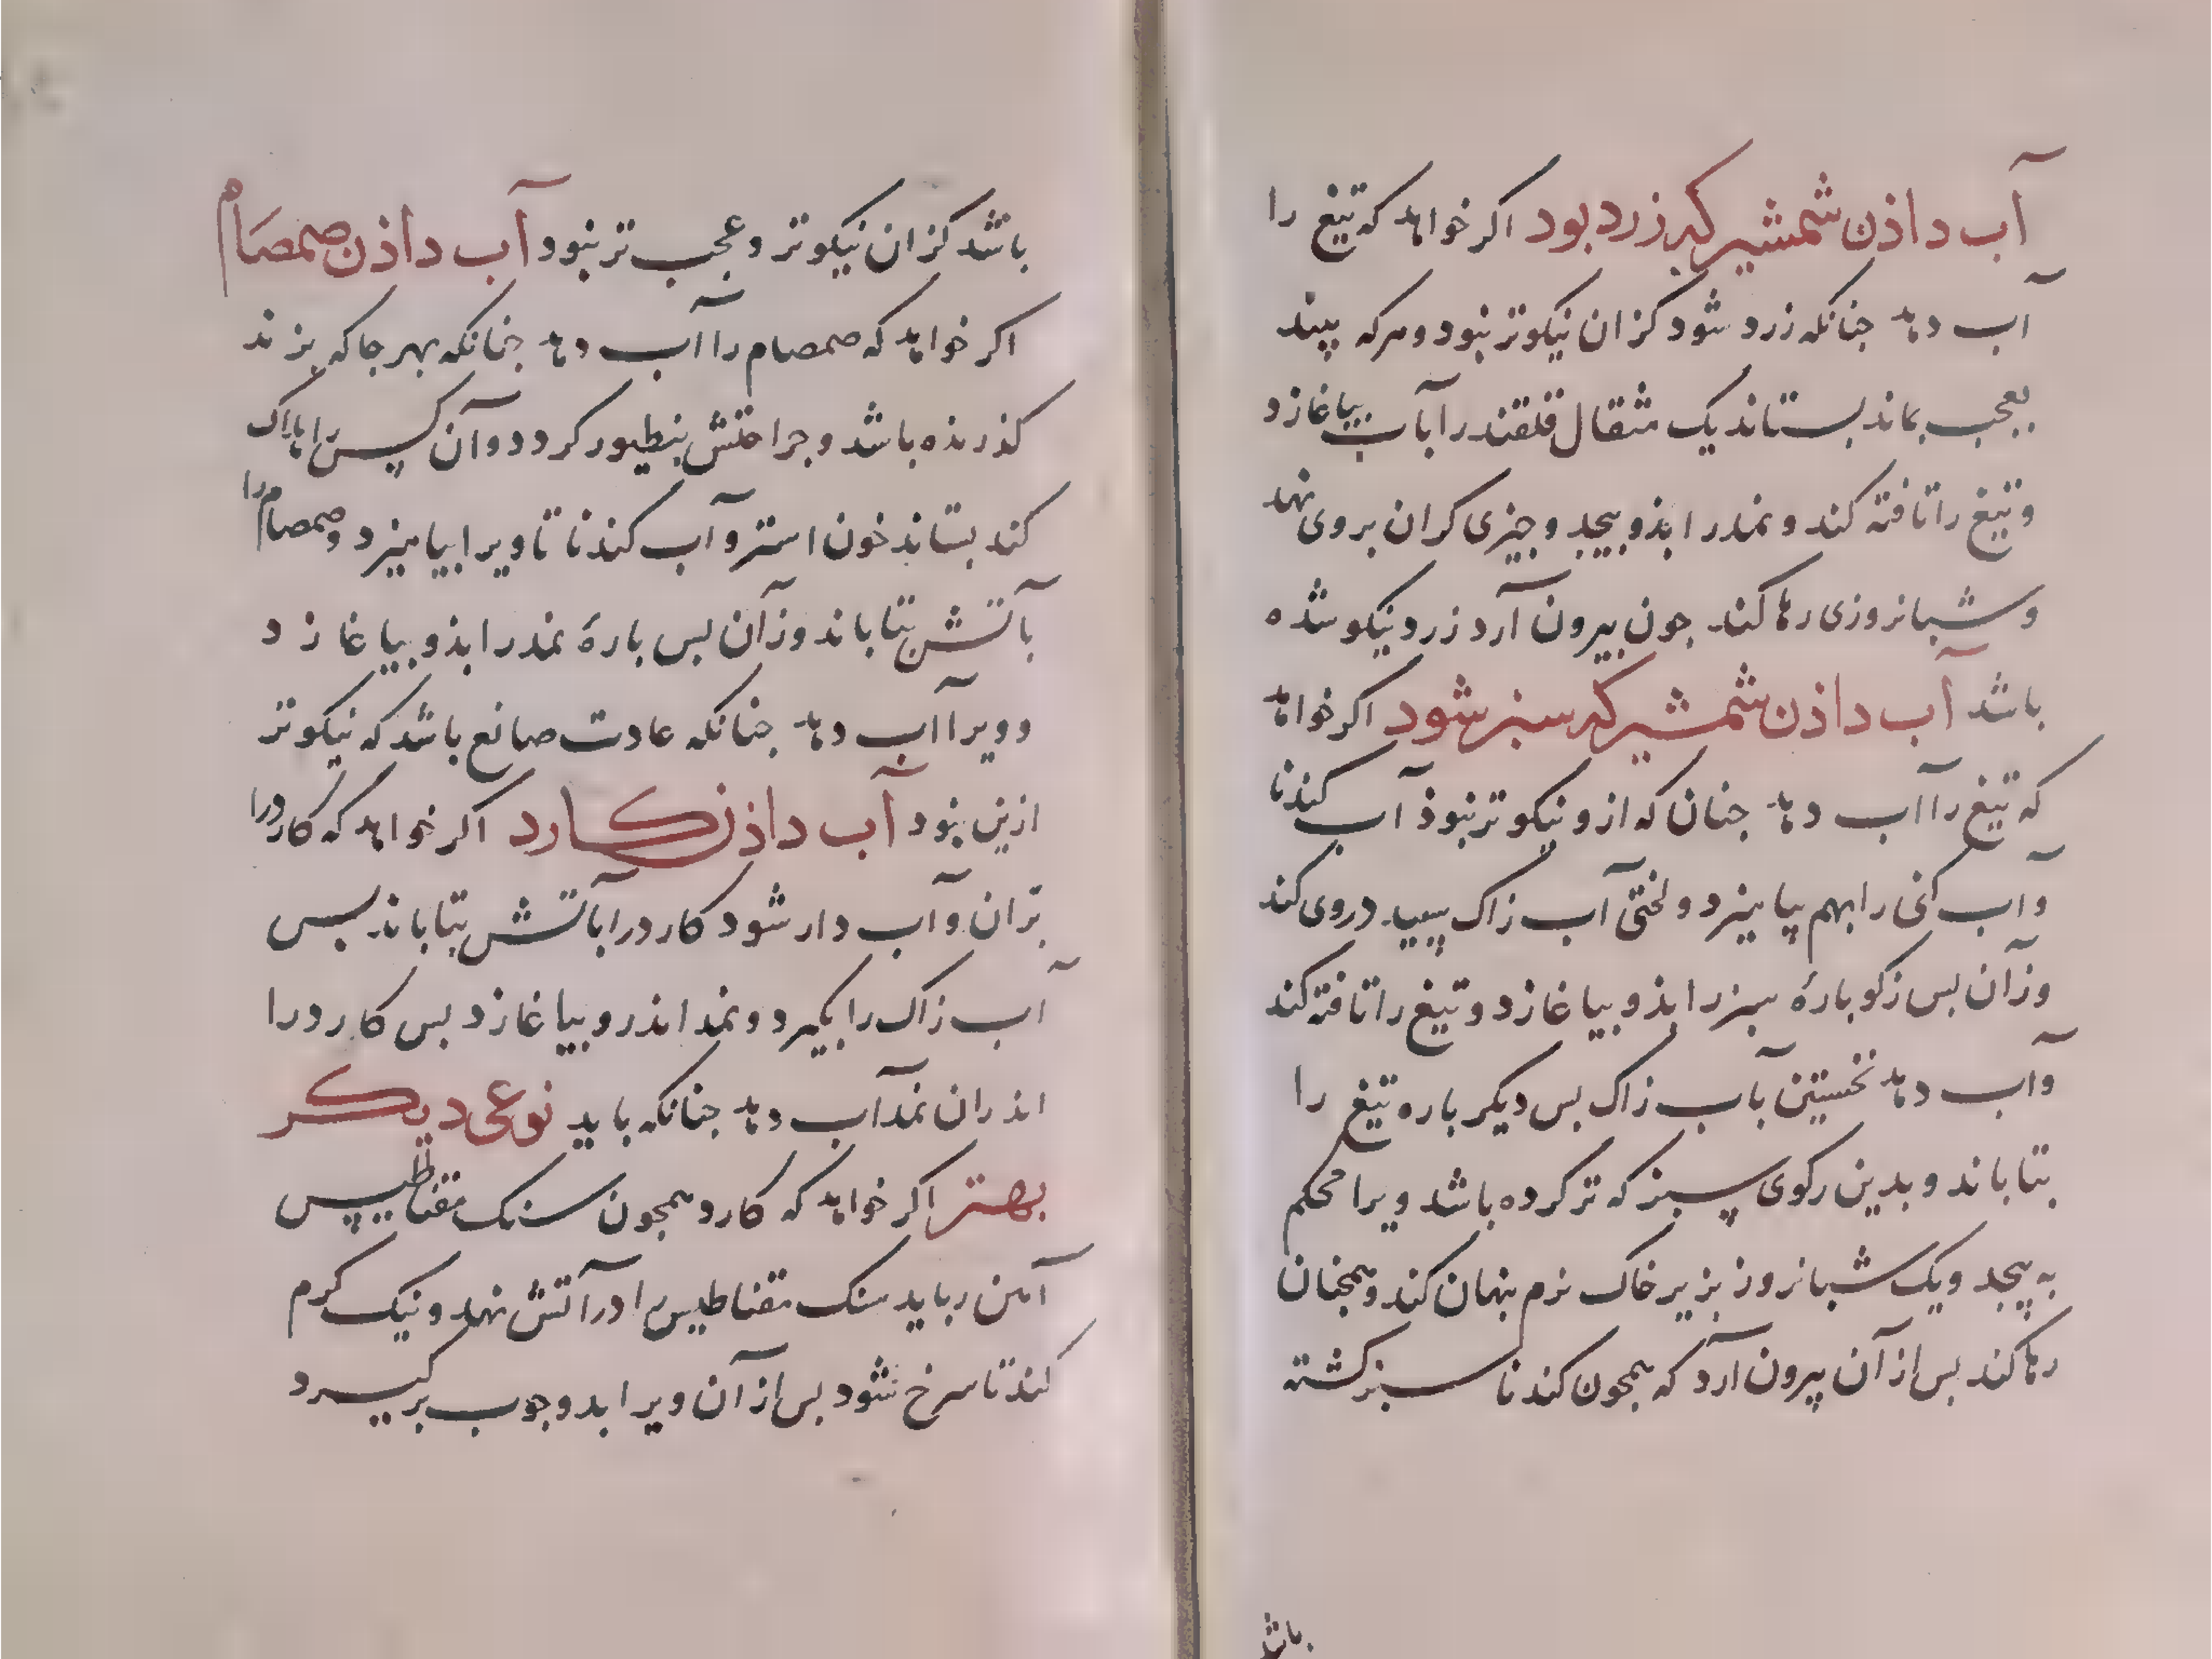 آب داذن شمشیر که زرد بود اکر خواهد که تیغ را
آب دهد جنانکه زرد شود کزان نیکوتر نبود و هرکه بیند
بعجب بماند بستاند یک مثقال قلقند را بآب بیاغازد
و تیغ را تافته کند و نمد را بذو بیجد و جیزی کران بروی نهد
و شبانروزی رها کند جون بیرون آرد زرد نیکو شده
باشد آب داذن شمشیر که سبز شود اکر خواهد
که تیغ را آب دهد جنان که ازو نیکوتر نبوذ آب کندنا
و آب را بهم بیامیزد و لختی آب زاک سپید در وی کند
وزآن بس رکو بارهٔ سبز را بذو بیاغازد و تیغ را تافته کند
و آب دهد نخستین بآب زاک بس دیکر باره تیغ را
بتاباند و بدین رکوی سبز که تر کرده باشد ویرا محکم
به پیجد و یک شبانروز بزیر خاک نرم بنهان کند و همجنان
رها کند بس از آن بیرون آرد که همجون کندنا سبز کشته
باشد
باشد کزان نیکوتر و عجب تر نبود آب داذن صمصام
اکر خواهد که صمصام را آب دهد جنانکه بهر جا که بزند
کذرنده باشد و جراحتش کردد و آن کس را هلاک
کند بستاند خون استر و آب کندنا تا ویرا بیامیزد و صمصام را
بآتش بتاباند وزآن بس بارهٔ نمد را بذو بیاغازد
و ویرا آب دهد جنانکه عادت صانع باشد که نیکوتر
ازین نبود آب داذن کارد اکر خواهد که کارد را
بران و آب دار شود کارد را بآتش بتاباند بس
آب زاک را بکیرد و نمد اندرو بیاغازد بس کارد را
اندران نمد آب دهد جنانکه باید نوعی دیکر
بهتر اکر خواهد که کارد همجون سنک مقناطیس
آهن رباید سنک مقناطیس را در آتش نهد و نیک کرم
کند تا سرخ شود بس از آن ویرا بدو جوب بر کیرد